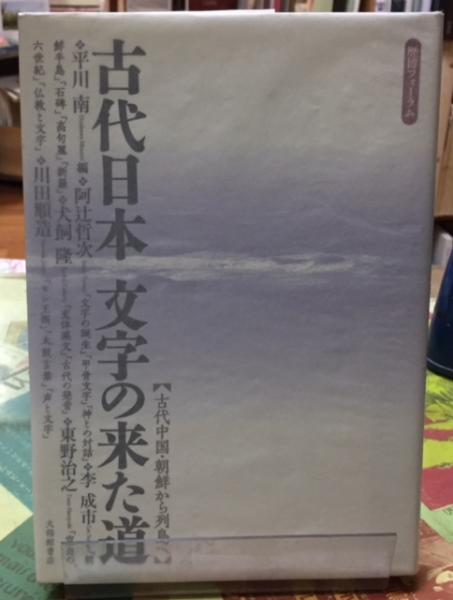 歴博フォーラム
古代日本 文字の来た道
【古代中国・朝鮮から列島へ】
❖平川 南 編❖阿辻哲次「文字の誕生」「甲骨文字」「神との対話」❖李 成市「朝
鮮半島」「石碑」「高句麗」「新羅」❖犬飼 隆「変体漢文」「古代の発音」❖東野治之
六世紀」「仏教と文字」❖川田順造「太鼓言葉」「声と文字」
大修館書店